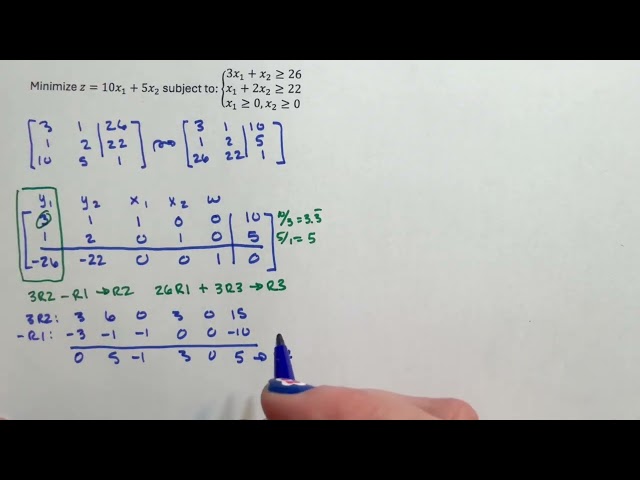 Minimize z = 10x₁ + 5x₂ subject to: { 3x₁ + x₂ ≥ 26
x₁ + 2x₂ ≥ 22
x₁ ≥ 0, x₂ ≥ 0
3 1 26 3 1 10
1 2 22 1 2 5
10 5 1 26 22 1
y₁ y₂ x₁ x₂ w
3 1 1 0 0 10 10/3 = 3.3̅
1 2 0 1 0 5 5/1 = 5
-26 -22 0 0 1 0
3R2 - R1 → R2 26R1 + 3R3 → R3
3R2: 3 6 0 3 0 15
-R1: -3 -1 -1 0 0 -10
0 5 -1 3 0 5 →